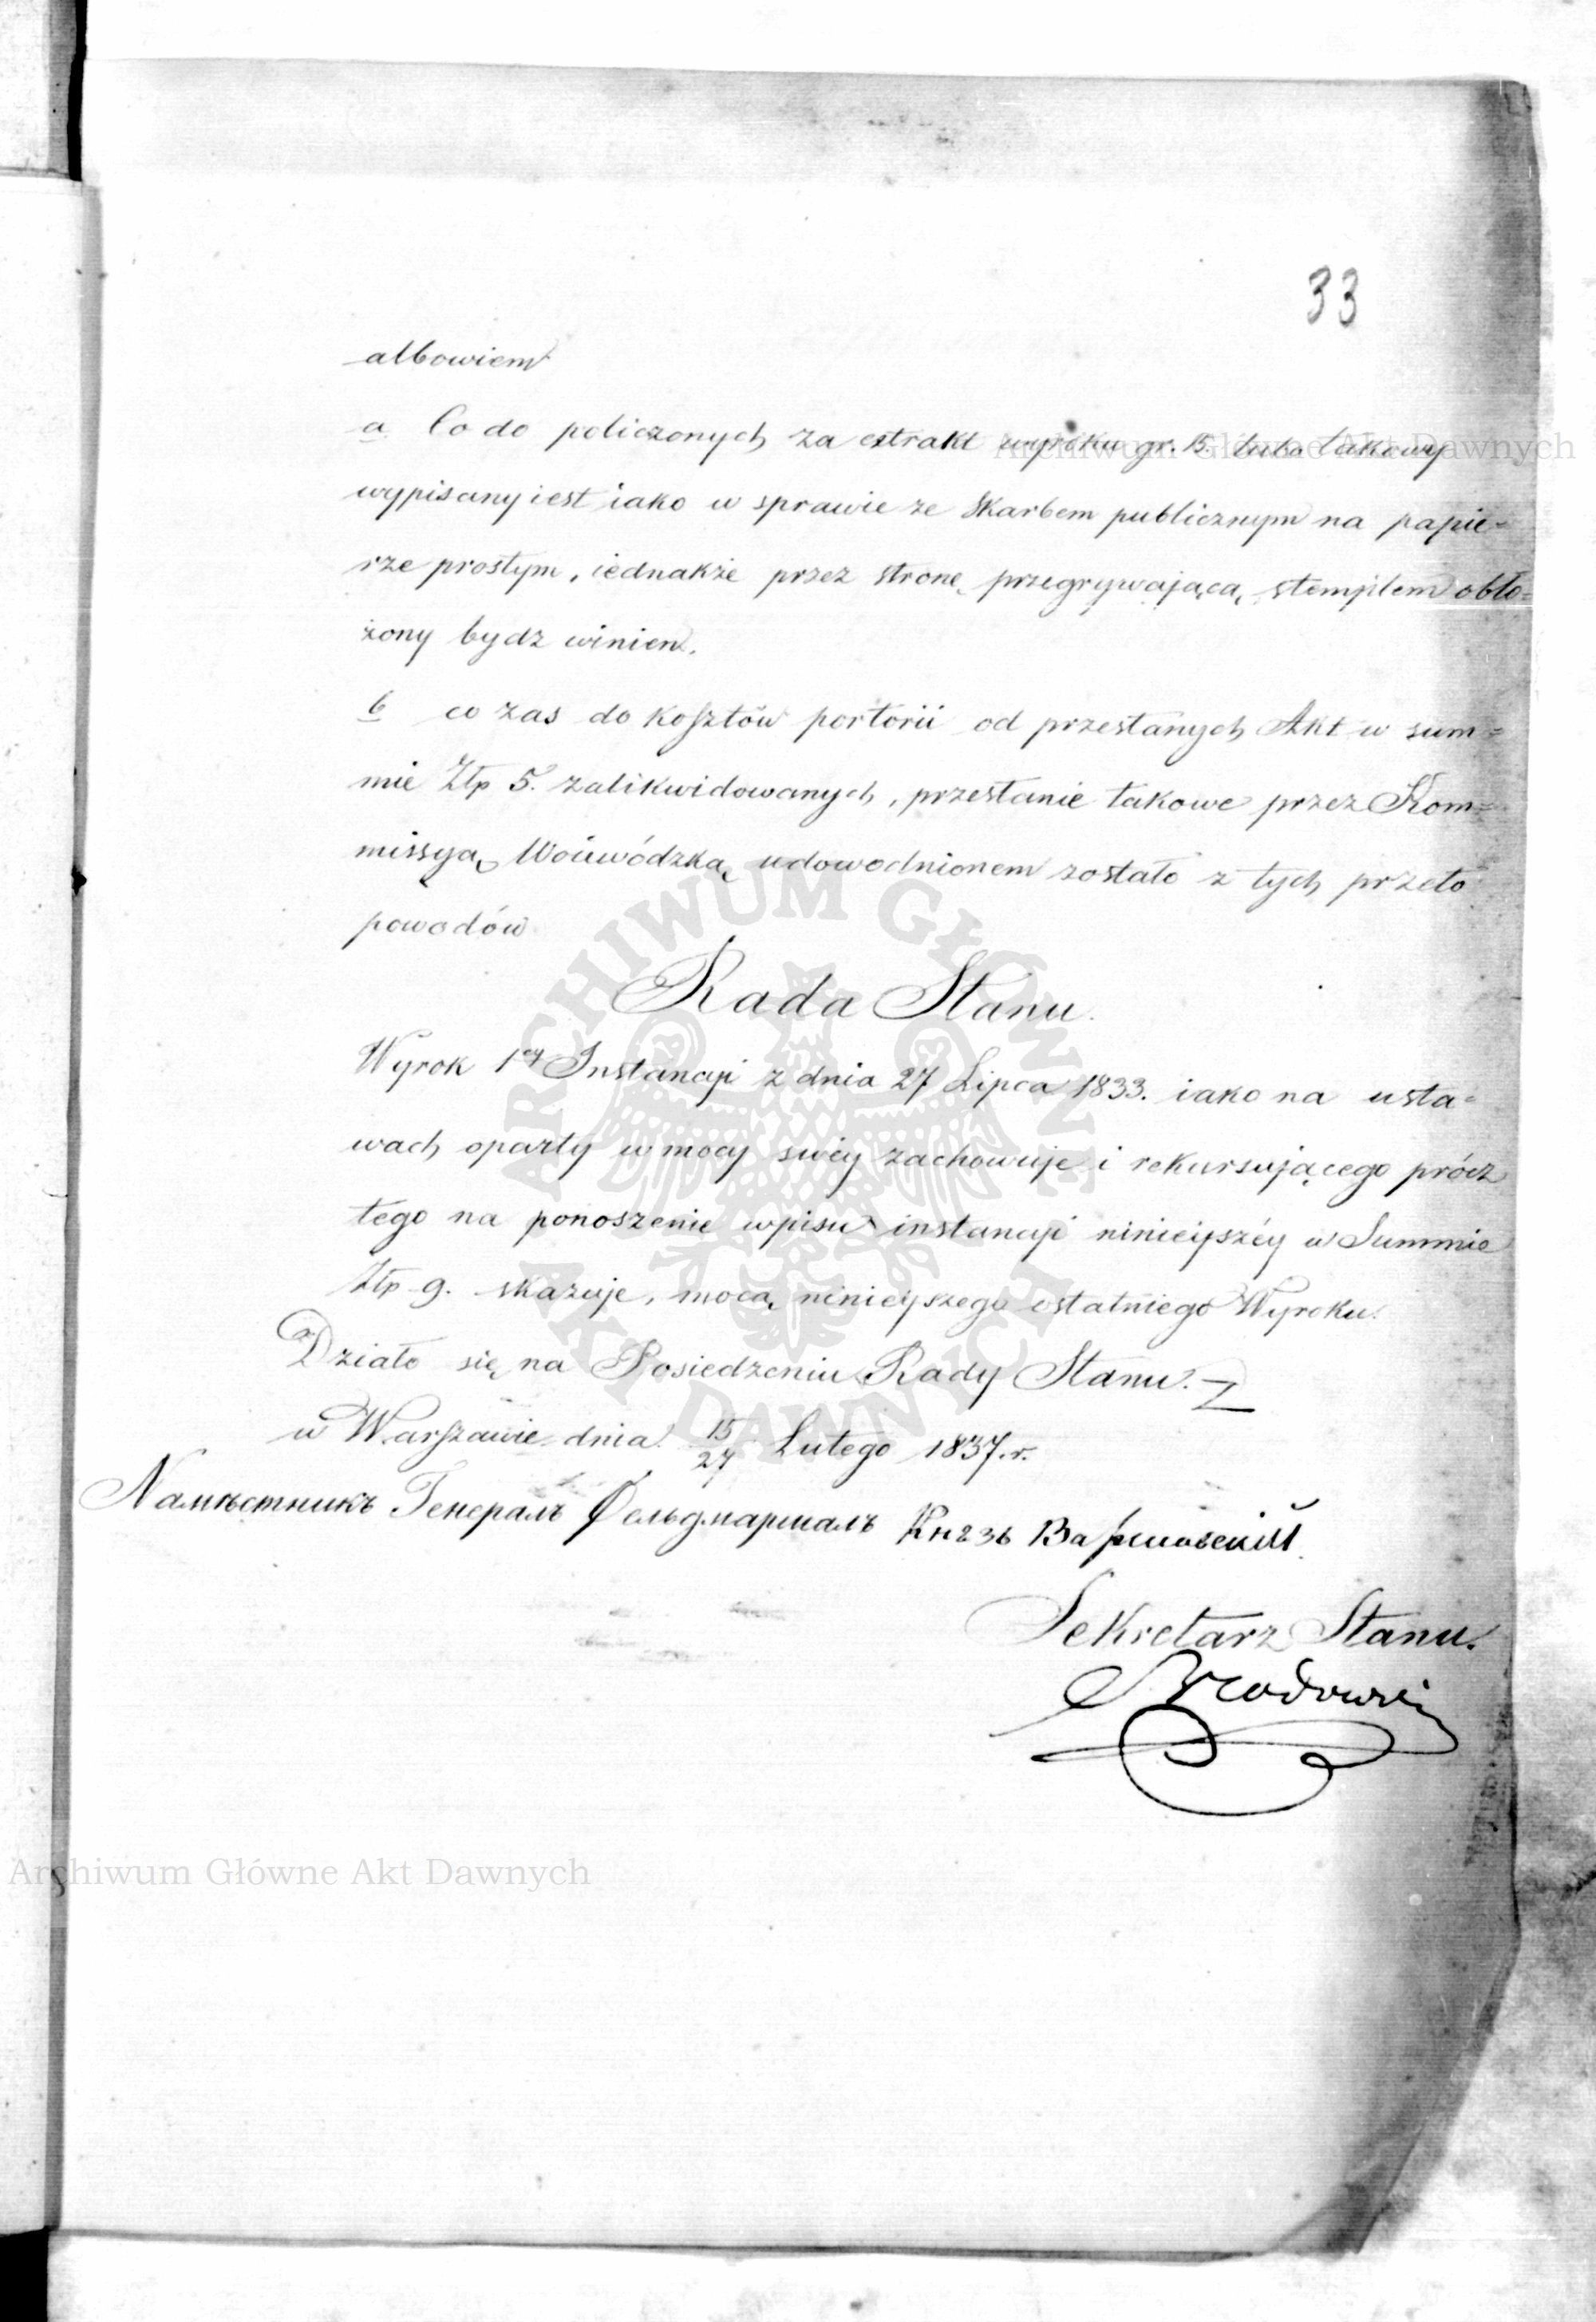 33
albowiem
a Co do policzonych za extrakt wyroku gr. 15. lubo takowy
wypisany iest iako w sprawie ze Skarbem publicznym na papie=
rze prostym, iednakże przez stronę przegrywaiącą stemplem obło=
żony bydz winien.
b co zas do kosztów portorii od przesłanych Akt w sum=
mie Złp 5. zalikwidowanych, przesłanie takowe przez Kom=
missyą Woiewódzką udowodnionem zostało z tych przeto
powodów
Rada Stanu.
Wyrok 1ey Instancyi z dnia 27 Lipca 1833. iako na usta=
wach oparty w mocy swéy zachowuje i rekursującego prócz
tego na ponoszenie wpisu instancyi ninieyszéy w Summie
Złp 9. skazuje, mocą ninieyszego ostatniego Wyroku.
Działo się na Posiedzeniu Rady Stanu.
w Warszawie dnia 15/27 Lutego 1837. r.
Намѣстникъ Генералъ Фельдмаршалъ Князь Варшавскій
Sekretarz Stanu.
Archiwum Główne Akt Dawnych
ARCHIWUM GŁÓWNE AKT DAWNYCH
Archiwum Główne Akt Dawnych